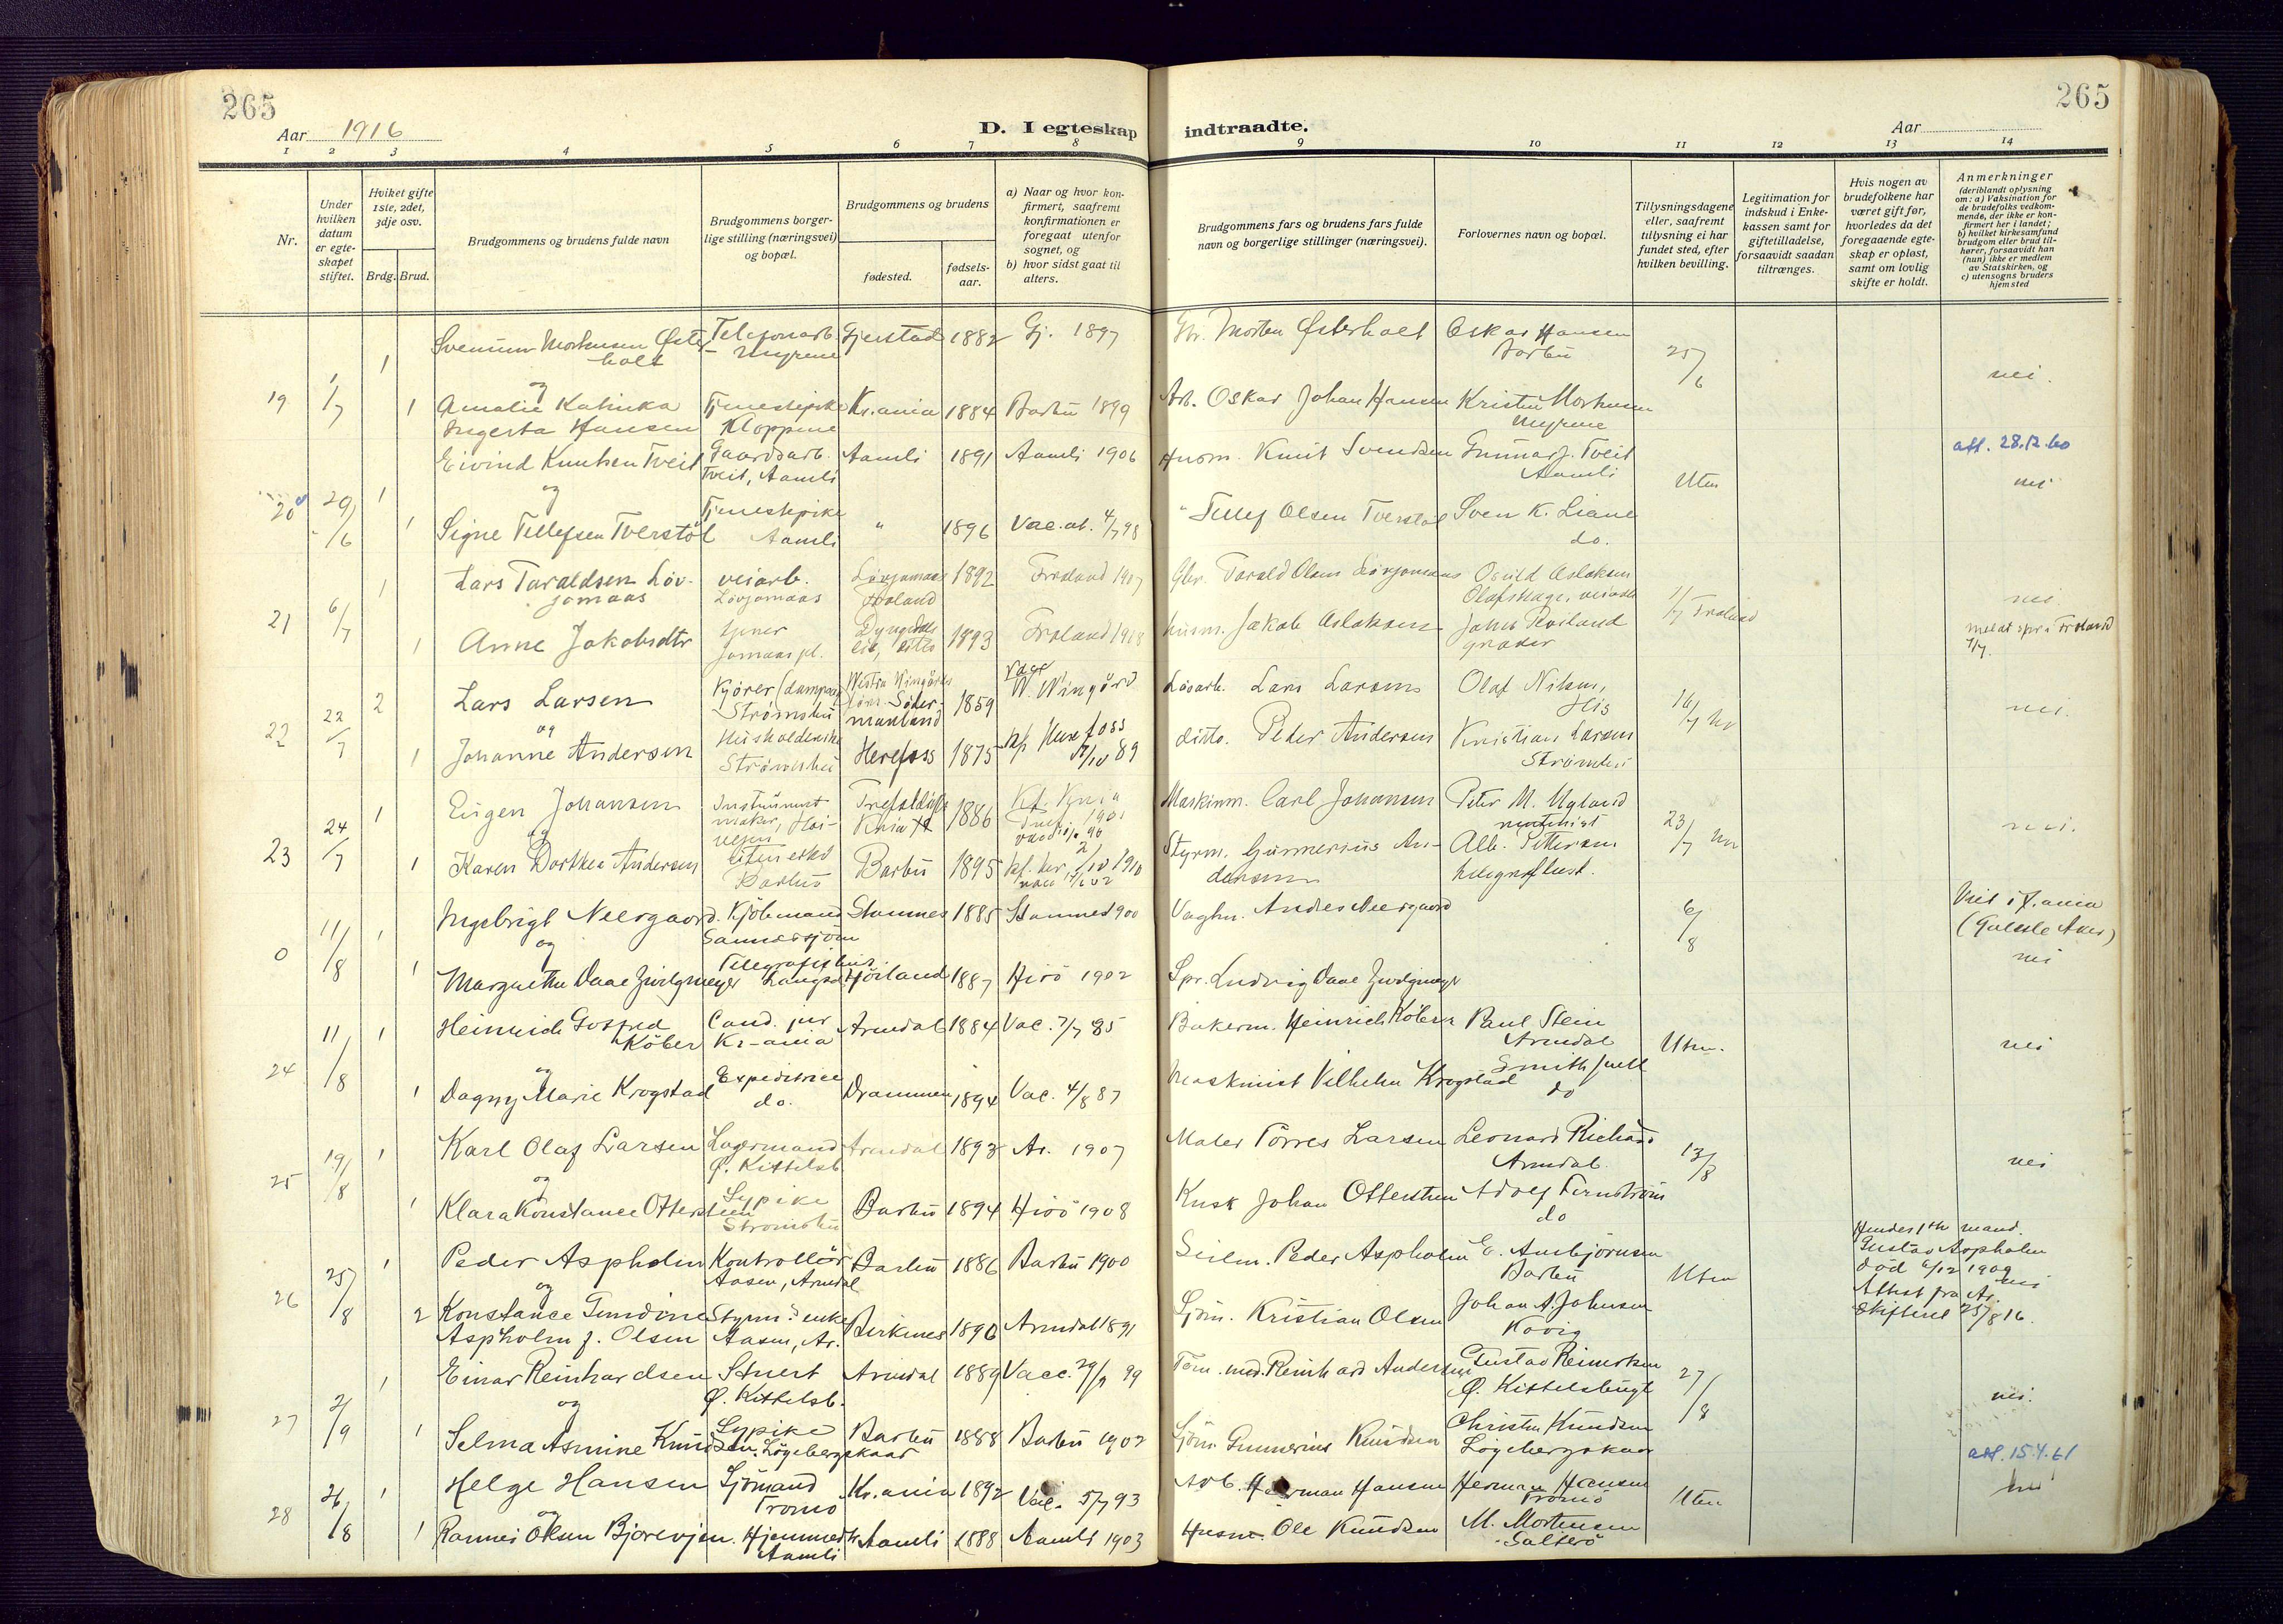 265
265
Aar 1916
D. I egteskap indtraadte.
Aar
1 2 3 4 5 6 7 8 9 10 11 12 13 14
Nr.
Under hvilken datum er egteskapet stiftet.
Hviket gifte 1ste, 2det, 3dje osv.
Brdg. Brud.
Brudgommens og brudens fulde navn
Brudgommens borgerlige stilling (næringsvei) og bopæl.
Brudgommens og brudens
fødested.
fødselsaar.
a) Naar og hvor konfirmert, saafremt konfirmationen er foregaat utenfor sognet, og
b) hvor sidst gaat til alters.
Brudgommens fars og brudens fars fulde navn og borgerlige stillinger (næringsvei).
Forlovernes navn og bopæl.
Tillysningsdagene eller, saafremt tillysning ei har fundet sted, efter hvilken bevilling.
Legitimation for indskud i Enkekassen samt for giftetilladelse, forsaavidt saadan tiltrænges.
Hvis nogen av brudefolkene har været gift før, hvorledes da det foregaaende egteskap er opløst, samt om lovlig skifte er holdt.
Anmerkninger
(deriblandt oplysning om: a) Vaksination for de brudefolks vedkommende, der ikke er konfirmert her i landet; b) hvilket kirkesamfund brudgom eller brud tilhører, forsaavidt han (hun) ikke er medlem av Statskirken, og c) utensogns bruders hjemsted
Mortensen Øster- Telefonarb. Gjerstad 1882 Gj. 1897 Morten Østerholt Oskar Hansen
1 holt Myrene Barbu 25/6 nei.
19 1/7 og
1 Amalie Katinka Tjenestepike Kr.ania 1884 Barbu 1899 Arb. Oskar Johan Hansen Kristen Mortensen
Ingerta Hansen Kloppene Myrene
Eivind Knutsen Tveit Gaardsarb. Aamli 1891 Aamli 1906 Husm. Knut Svendsen Gunnar J. Tveit att. 28.12.60
1 Tveit, Aamli Aamli Uten nei
20 29/6 og
1 Signe Tellefsen Tverstöl Tjenestepike Aamli " 1896 Vac. at. 4/7 98 " Tellef Olsen Tverstöl Sven K. Liane
do.
1 Lars Taraldsen Löv- veiarb. Lövjomaas 1892 Froland 1907 Gbr. Tarald Olsen Lövjomaas Osuld Aslaksen
jomaas Lövjomaas Froland nei
21 6/7 1/7 Froland
1 Anne Jakobsdtr tjener 1893 Froland 1908 husm. Jakob Aslaksen
Jomaas pl.
2 Lars Larsen Kjörer Strömsbu 1859 Lösarb. Lars Larsens Olaf Nilsen, His 16/7 nei.
22 22/7 og
1 Johanne Andersen Strömsbu Herefoss 1875 Herefoss 89 ditto. Peder Andersen Kristian Larsen
Strömsbu
1 Eugen Johansen Instrumentmaker, 1886 1901 Maskinm. Carl Johansen Peter M. Ugland 23/7 nei.
23 24/7 og
1 Karen Dorthea Andersen Barbu Barbu 1895 1910 Styrm. Gunnerius An- Alb. Pettersen
dersen
1 Ingebrigt Neergaard. Kjöbmand Stamnes 1885 Stamnes 1900 Vaghn. Andr. Neergaard 6/8
0 11/8 og
1 Margrethe Daae Zwilgmeyer Hjörland 1887 Hisö 1902 Spr. Ludvig Daae Zwilgmeyer nei
1 Heinrich Gotfred Cand. jur Arendal 1884 Vac. 7/7 85 Bakerm. Heinrich Köber Paul Stein
Köber Kr-ania Arendal Uten. nei
24 11/8 og
1 Dagny Marie Krogstad Expeditrice do. Drammen 1894 Vac. 4/8 87 Maskinist Vilhelm Krogstad Smith
do
1 Karl Olaf Larsen Lagermand Arendal 1893 Ar. 1907 Maler Törres Larsen Leonard Richard
Ø. Kittelsb. Arendal. 13/8 nei
25 19/8 og
1 Klara Konstance Ottersteen Sypike Barbu 1894 Hisö 1908 Kusk Johan Ottersteen Adolf Fernström
Strömsbu do
1 Peder Aspholm Kontrollör Barbu 1886 Barbu 1900 Seilm. Peder Aspholm E. Ausbjörnsen
Aasen, Arendal Barbu Uten
26 25/8 og
2 Konstance Gundine Styrm. enke Birkenes 1890 Arendal 1891 Sjöm. Kristian Olsen Johan A. Johnsen
Aspholm f. Olsen Aasen, Ar.
Hendes 1ste mand.
Gustav Aspholm
död 6/12 1909 nei
Attest fra Ar.
Skifteret 25/8 16.
1 Einar Reinhardsen Stuert Arendal 1889 Vacc. 29/9 99 Töm. md. Reinhard Andersen Gustav Reinertsen
Ø. Kittelsb. Ø. Kittelsbugt 27/8 nei.
27 2/9 og
1 Selma Asmine Knudsen Sypike Barbu 1888 Barbu 1902 Sjöm. Gunnerius Knudsen Christen Knudsen
Lögebergskaar Lögebergskaar
att. 15.4.61
1 Helge Hansen Sjömand Kr.ania 1892 Vac. 5/7 93 Arb. Herman Hansen Herman Hansen
Tromö Tromö Uten
28 26/8 og
1 Rannei Olsen Bjorevjen. Hjemmedtr Aamli 1888 Aamli 1903 Husm. Ole Knudsen M. Mortensen
Aamli Salterö